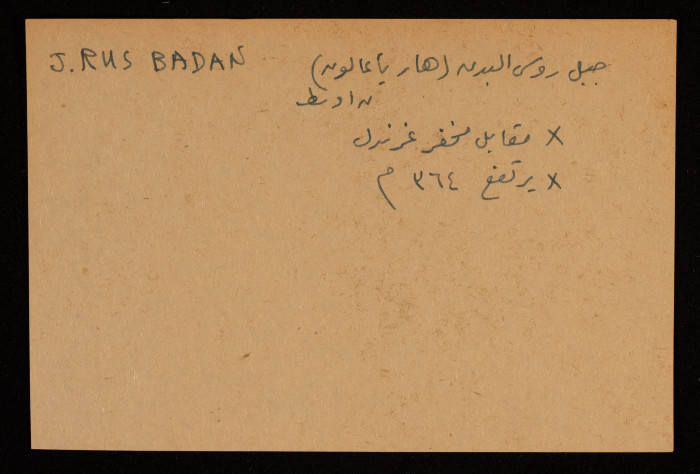 J. RUS BADAN
جبل روس البدن (هار يأعالون)
× مقابل مخفر غرندل
× يرتفع ٣٦٤ م